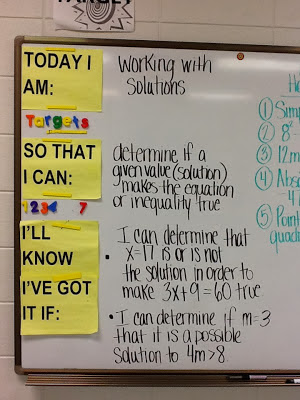 TODAY I
AM:
Working with
Solutions
Targets
SO THAT
I CAN:
determine if a
given value (solution)
makes the equation
or inequality true
1234 7
I'LL
KNOW
I'VE GOT
IT IF:
• I can determine that
x=17 is or is not
the solution in order to
make 3x+9=60 true
• I can determine if m=3
that it is a possible
solution to 4m>8.
①
② 8²
③ 12m
④
⑤